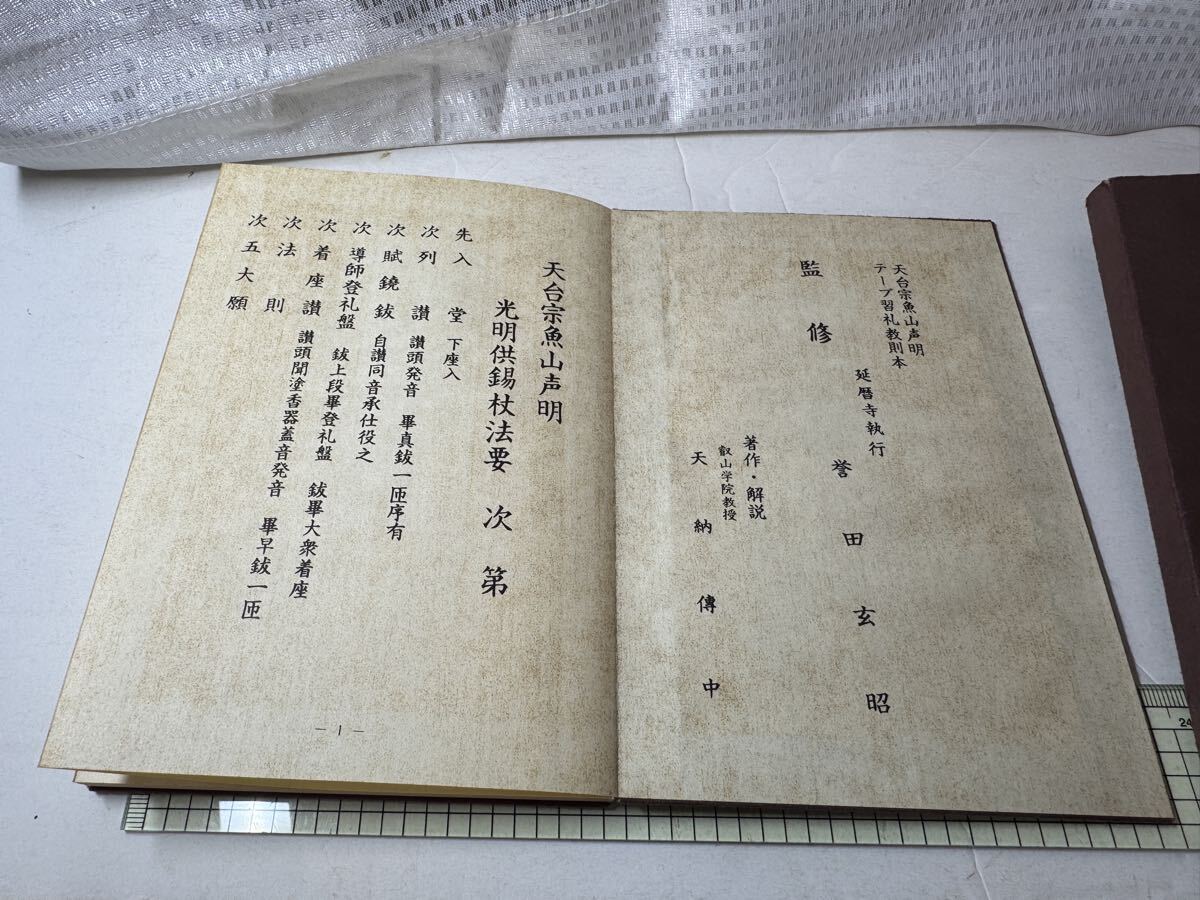 天台宗魚山声明
テープ習礼教則本
監修
延暦寺執行
誉田玄昭
著作・解説
叡山学院教授
天納傳中
天台宗魚山声明
光明供錫杖法要 次第
先入堂 下座入
次列讃 讃頭発音 畢真鈸一匝序有
次賦鐃鈸 自讃同音承仕役之
次導師登礼盤 鈸上段畢登礼盤 鈸畢大衆着座
次着座讃 讃頭聞塗香器蓋音発音 畢早鈸一匝
次法則
次五大願
－1－
24